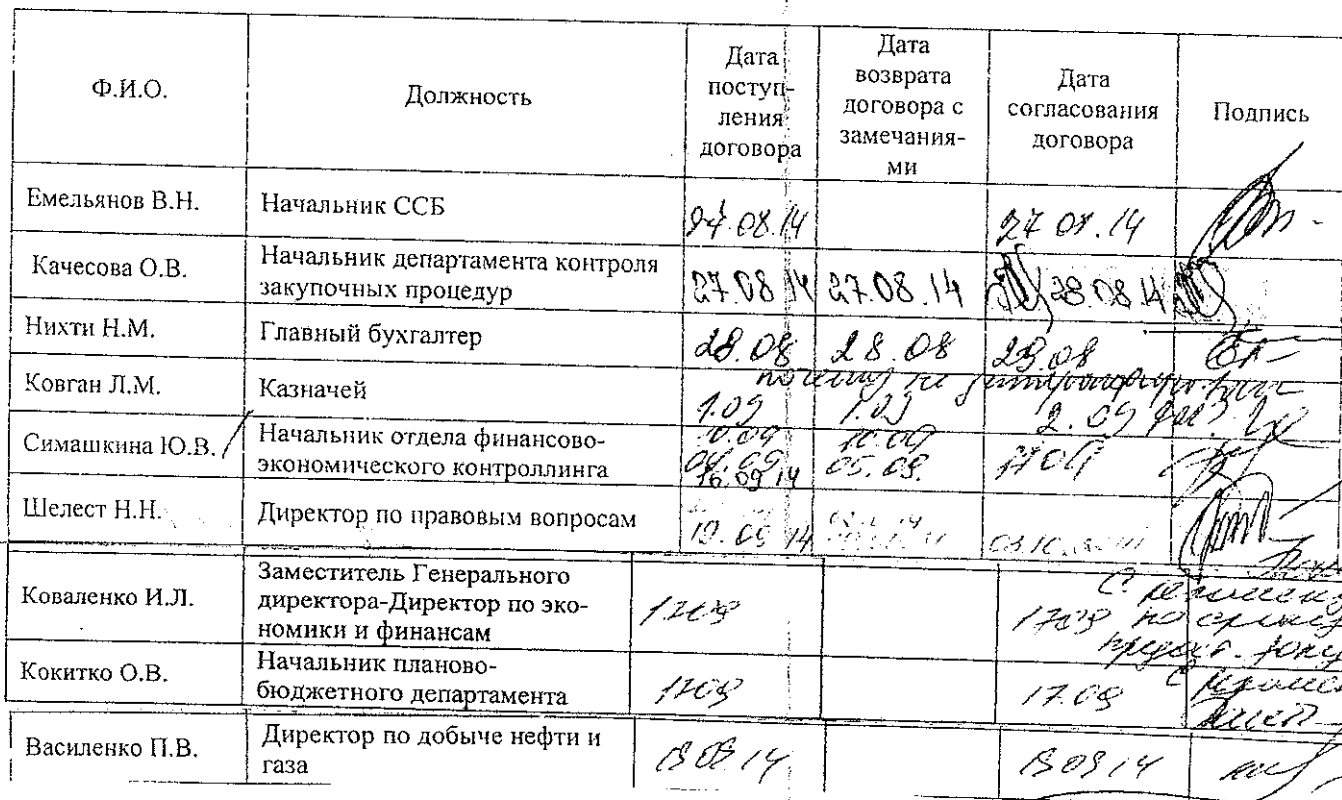 Ф.И.О.
Должность
Дата
поступ-
ления
договора
Дата
возврата
договора с
замечания-
ми
Дата
согласования
договора
Подпись
Емельянов В.Н.
Начальник ССБ
27.08.14
27 08.14
Качесова О.В.
Начальник департамента контроля
закупочных процедур
27.08 14
27.08.14
28.08 14
Нихти Н.М.
Главный бухгалтер
28.08
28.08
29.08
почему не
Ковган Л.М.
Казначей
1.09
1.09
2.09
Симашкина Ю.В.
Начальник отдела финансово-
экономического контроллинга
10.09
10.09
04.09
05.09.
17 09
16.09 14
Шелест Н.Н.
Директор по правовым вопросам
19.09 14
Коваленко И.Л.
Заместитель Генерального
директора-Директор по эко-
номики и финансам
17.09
1709
С
по
Кокитко О.В.
Начальник планово-
бюджетного департамента
1709
17.09
С
Василенко П.В.
Директор по добыче нефти и
газа